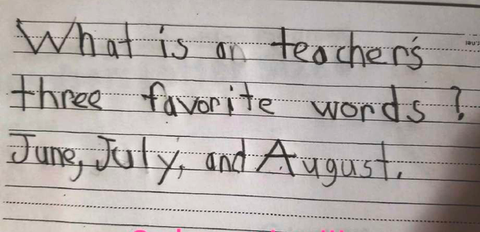 What is an teacher's
three favorite words?
June, July, and August.